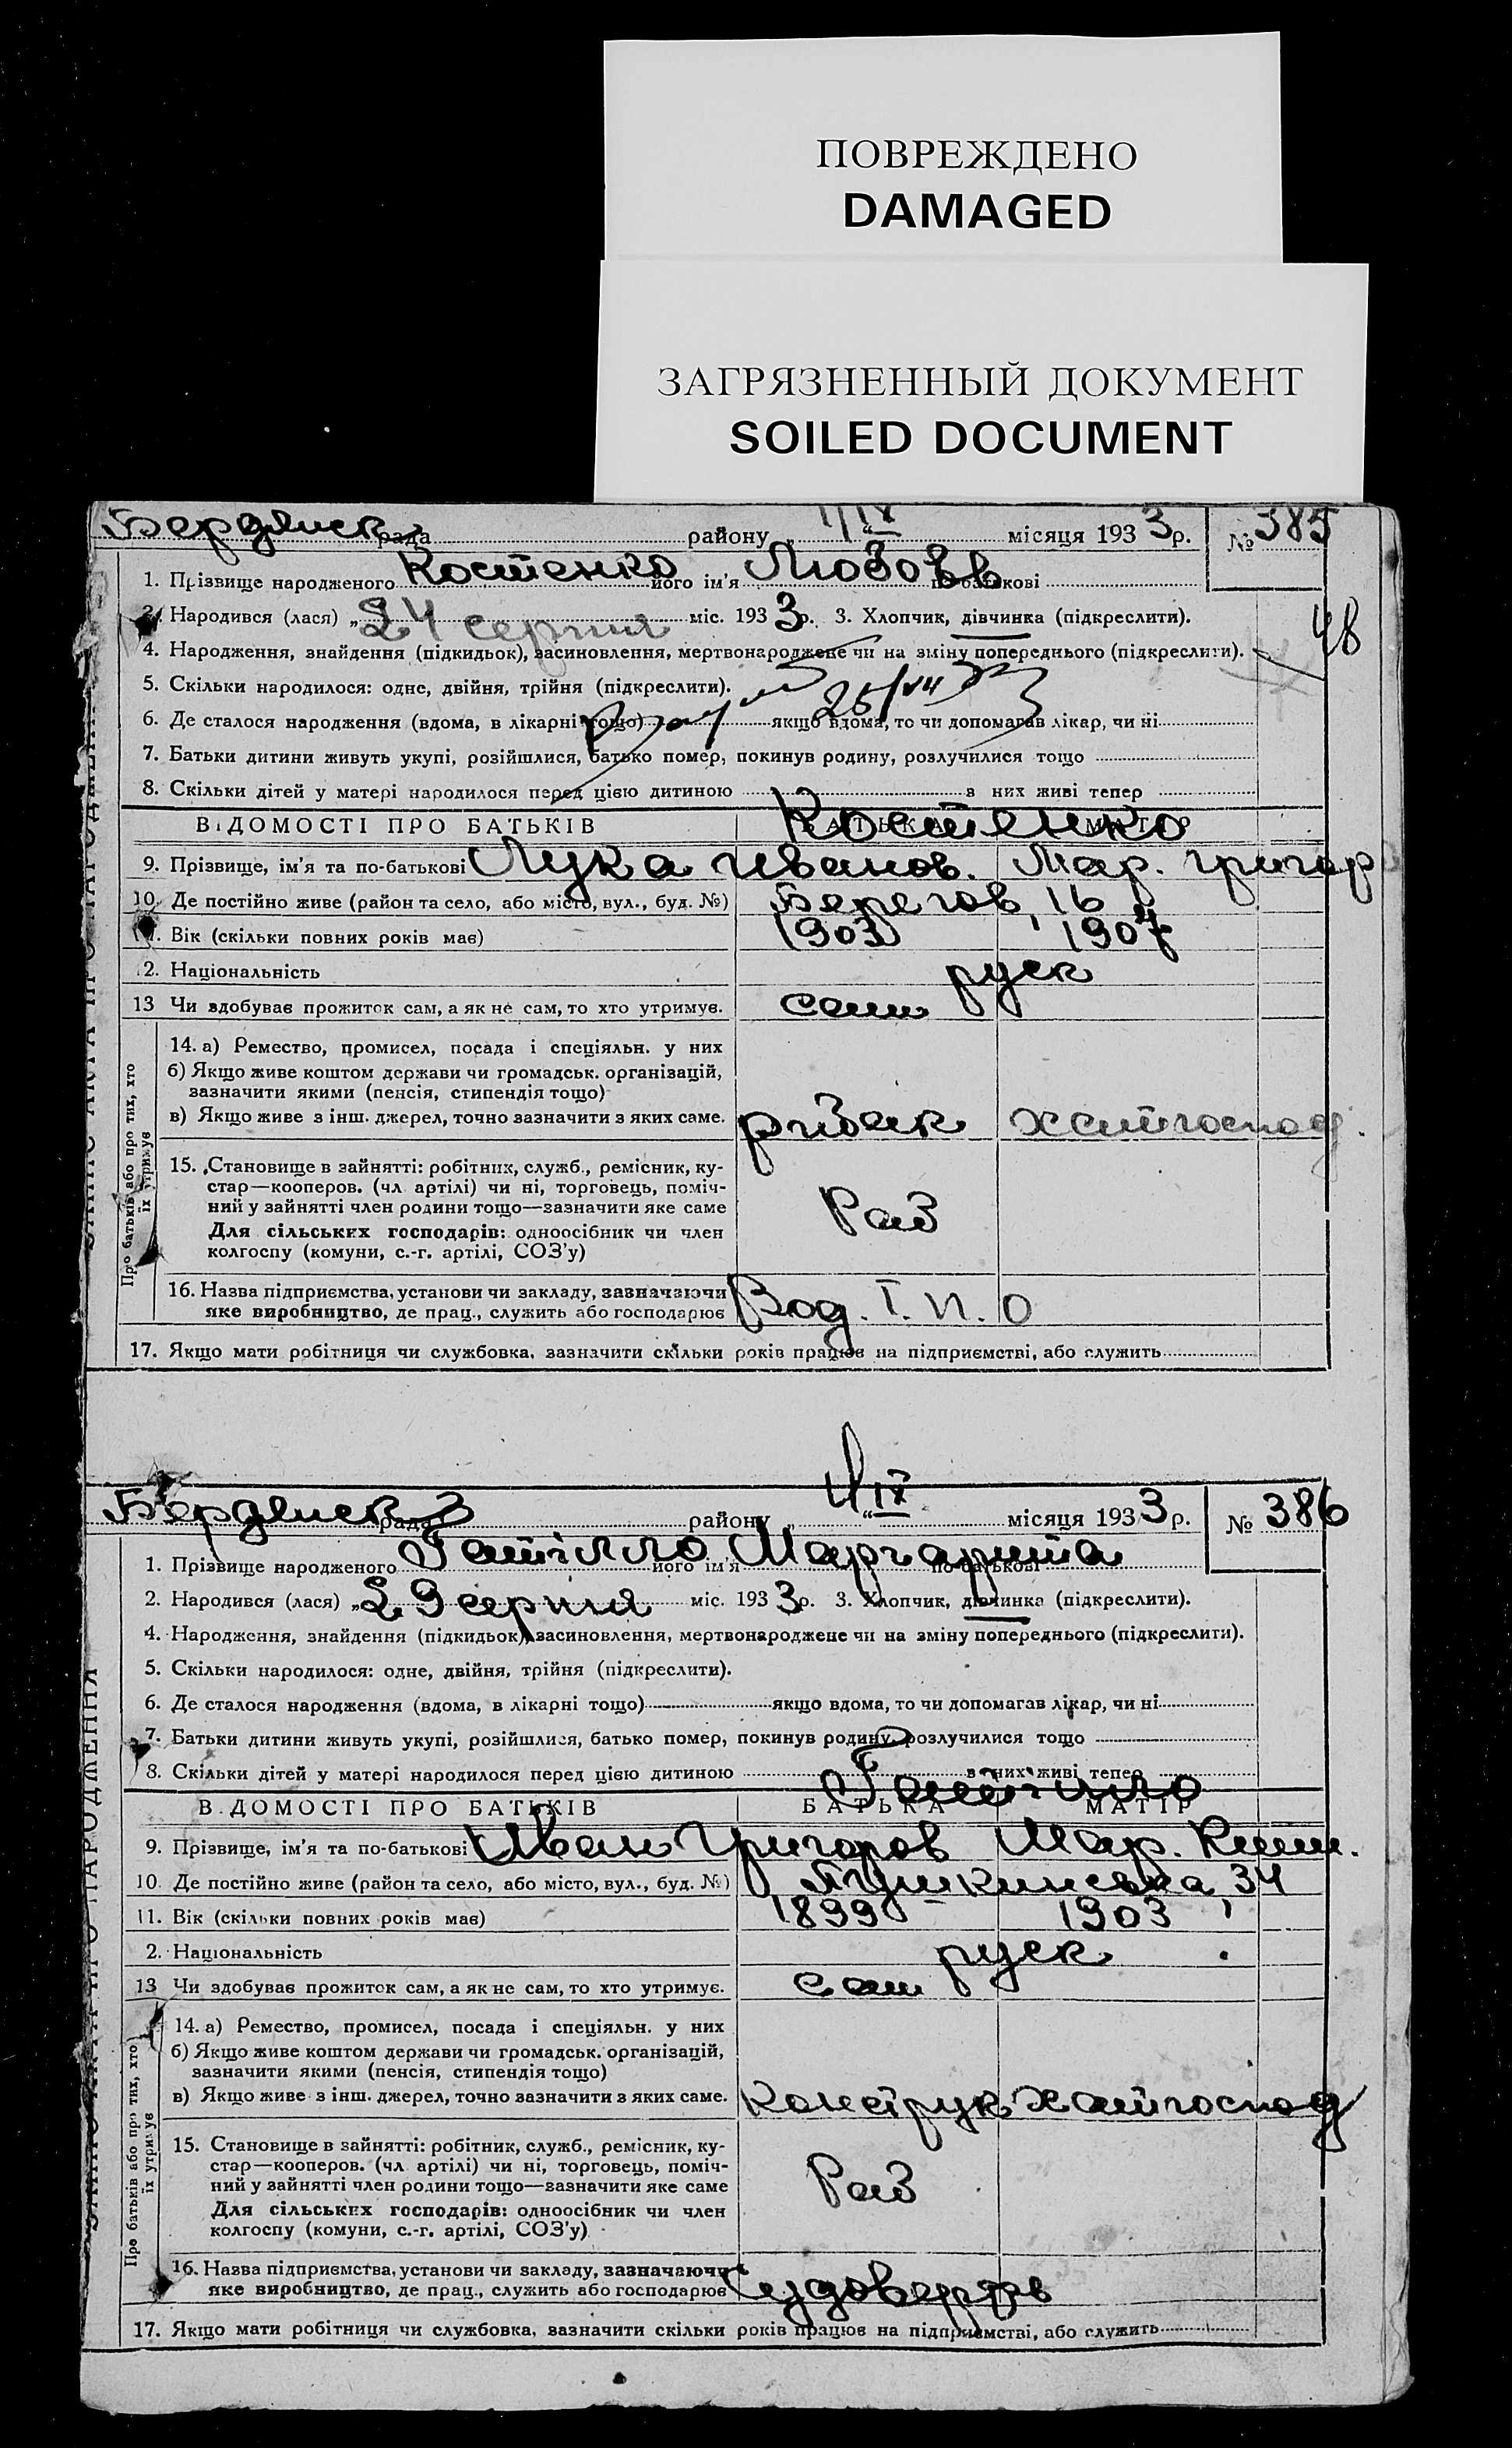 ПОВРЕЖДЕНО
DAMAGED
ЗАГРЯЗНЕННЫЙ ДОКУМЕНТ
SOILED DOCUMENT
Бердянск рада району „1/IX“ місяця 1933р. № 385
1. Прізвище народженого Костенко його ім'я Любовь по-батькові
2. Народився (лася) „24 серпня міс. 1933р. 3. Хлопчик, дівчинка (підкреслити).
48
4. Народження, знайдення (підкидьок), засиновлення, мертвонароджене чи на зміну попереднього (підкреслити).
5. Скільки народилося: одне, двійня, трійня (підкреслити).
6. Де сталося народження (вдома, в лікарні тощо) якщо вдома, то чи допомагав лікар, чи ні
7. Батьки дитини живуть укупі, розійшлися, батько помер, покинув родину, розлучилися тощо
8. Скільки дітей у матері народилося перед цією дитиною в них живі тепер
ВІДОМОСТІ ПРО БАТЬКІВ БАТЬКА МАТІР
Костенко
9. Прізвище, ім'я та по-батькові Лука Иванов. Мар. Григор
10. Де постійно живе (район та село, або місто, вул., буд. №) Берегов, 16
11. Вік (скільки повних років має) 1903 1907
12. Національність руск
13 Чи здобуває прожиток сам, а як не сам, то хто утримує. сам
Про батьків або про тих, хто їх утримує
14. а) Ремество, промисел, посада і спеціяльн. у них
б) Якщо живе коштом держави чи громадськ. організацій,
зазначити якими (пенсія, стипендія тощо)
в) Якщо живе з інш. джерел, точно зазначити з яких саме. рибак хатгоспод.
15. Становище в зайнятті: робітник, служб., ремісник, ку-
стар—кооперов. (чл. артілі) чи ні, торговець, поміч-
ний у зайнятті член родини тощо—зазначити яке саме
Раб
Для сільських господарів: одноосібник чи член
колгоспу (комуни, с.-г. артілі, СОЗ'у)
16. Назва підприємства, установи чи закладу, зазначаючи
яке виробництво, де прац., служить або господарює Вод. Т. П. О
17. Якщо мати робітниця чи службовка, зазначити скільки років працює на підприємстві, або служить
Бердянск рада району „4/IX“ місяця 1933р. № 386
1. Прізвище народженого Гатілло його ім'я Маргарита по-батькові
2. Народився (лася) „29 серпня міс. 1933р. 3. Хлопчик, дівчинка (підкреслити).
4. Народження, знайдення (підкидьок), засиновлення, мертвонароджене чи на зміну попереднього (підкреслити).
5. Скільки народилося: одне, двійня, трійня (підкреслити).
6. Де сталося народження (вдома, в лікарні тощо) якщо вдома, то чи допомагав лікар, чи ні
7. Батьки дитини живуть укупі, розійшлися, батько помер, покинув родину, розлучилися тощо
8. Скільки дітей у матері народилося перед цією дитиною в них живі тепер
Гатілло
ВІДОМОСТІ ПРО БАТЬКІВ БАТЬКА МАТІР
9. Прізвище, ім'я та по-батькові Иван Григоров Мар.
10. Де постійно живе (район та село, або місто, вул., буд. №) Пушкинська, 34
11. Вік (скільки повних років має) 1899 1903
2. Національність руск
13 Чи здобуває прожиток сам, а як не сам, то хто утримує. сам
Про батьків або про тих, хто їх утримує
14. а) Ремество, промисел, посада і спеціяльн. у них
б) Якщо живе коштом держави чи громадськ. організацій,
зазначити якими (пенсія, стипендія тощо)
в) Якщо живе з інш. джерел, точно зазначити з яких саме. конструк хатгоспод
15. Становище в зайнятті: робітник, служб., ремісник, ку-
стар—кооперов. (чл. артілі) чи ні, торговець, поміч-
ний у зайнятті член родини тощо—зазначити яке саме
Раб
Для сільських господарів: одноосібник чи член
колгоспу (комуни, с.-г. артілі, СОЗ'у)
16. Назва підприємства, установи чи закладу, зазначаючи
яке виробництво, де прац., служить або господарює Судоверфь
17. Якщо мати робітниця чи службовка, зазначити скільки років працює на підприємстві, або служить